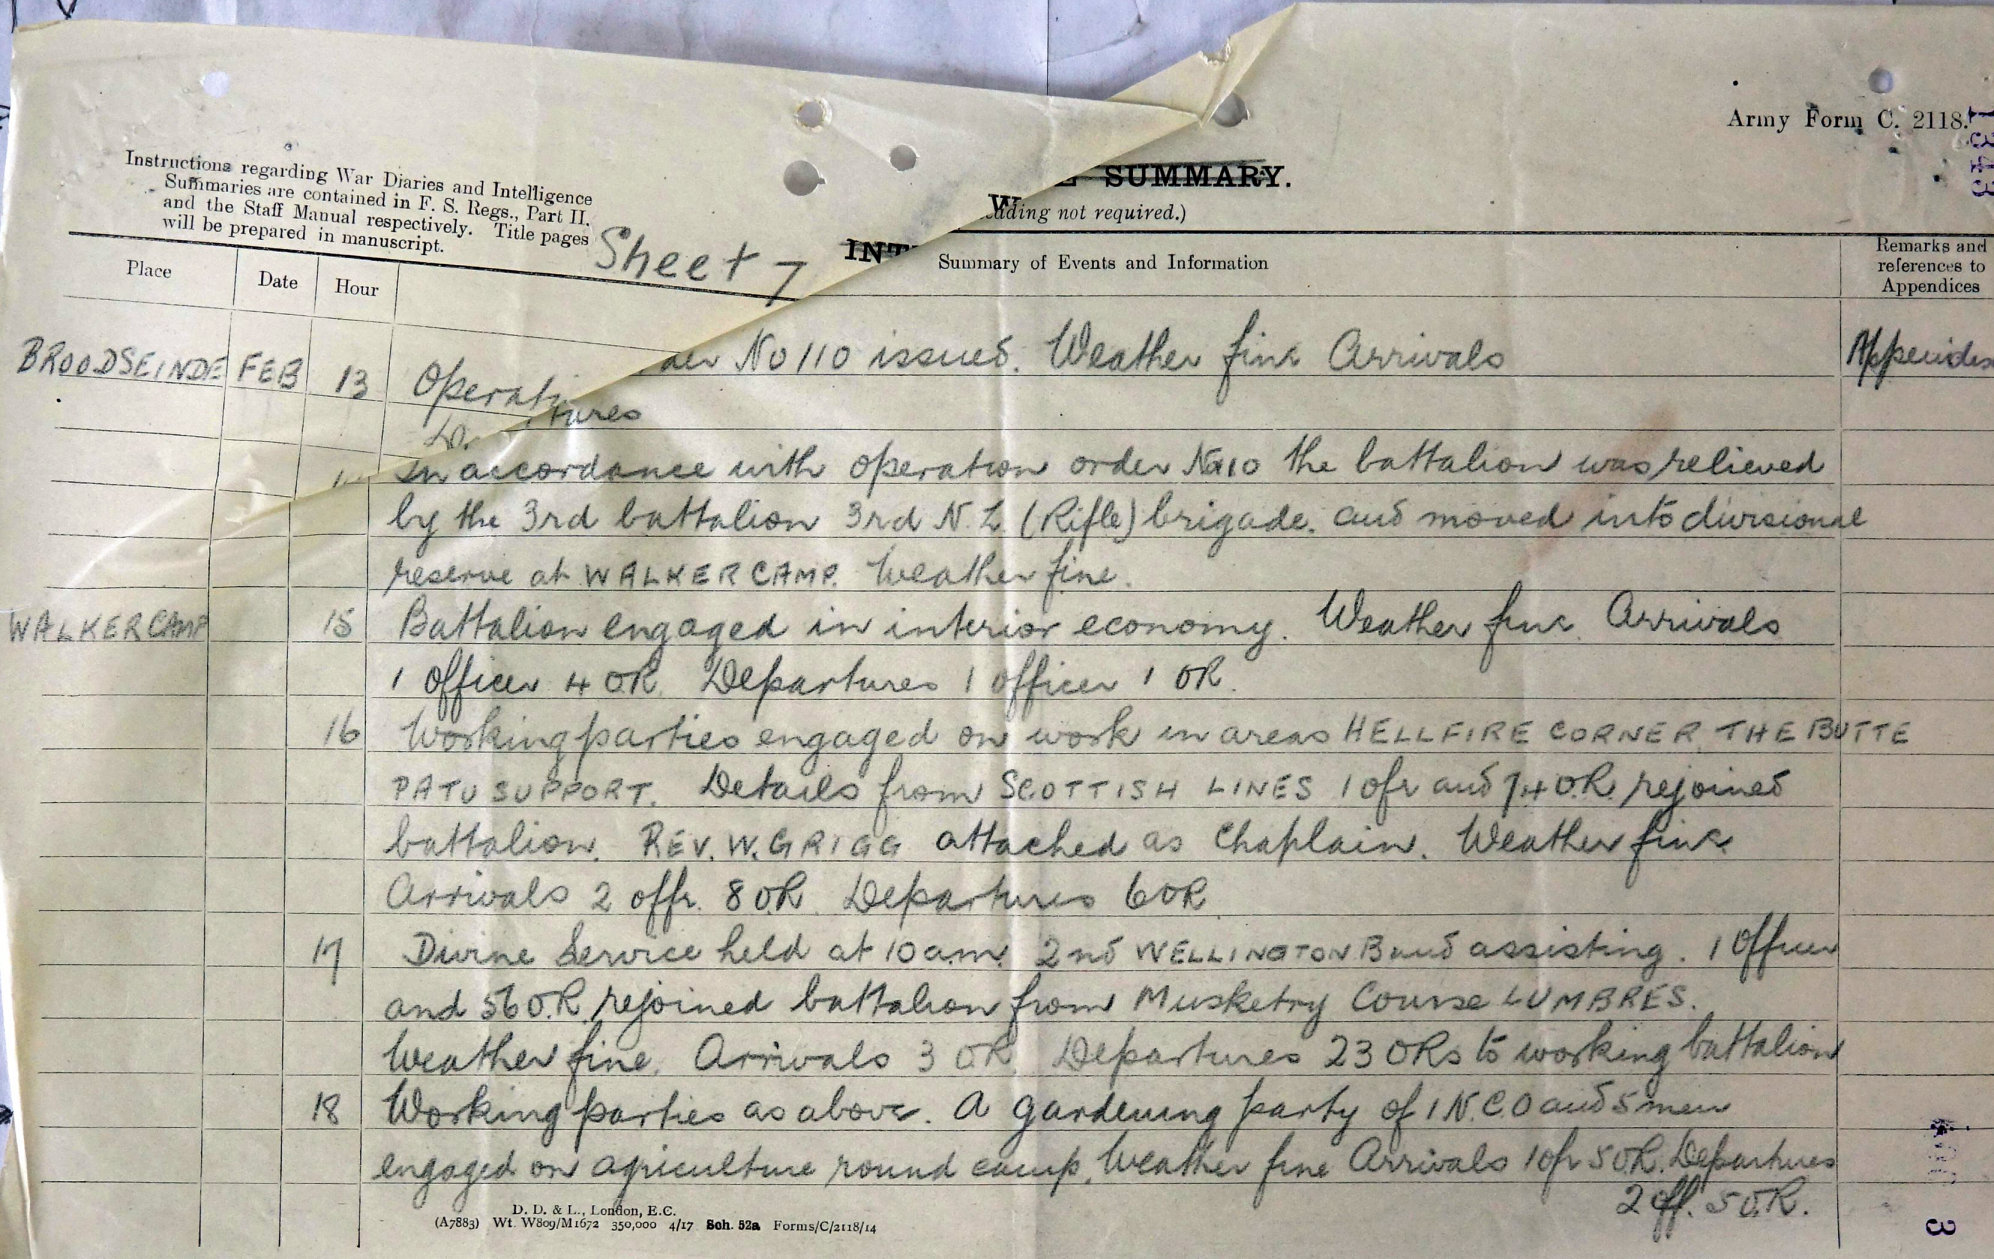 Army Form C. 2118.
1343
Instructions regarding War Diaries and Intelligence
Summaries are contained in F. S. Regs., Part II.
and the Staff Manual respectively. Title pages
will be prepared in manuscript.
Sheet 7
SUMMARY.
not required.)
Place Date Hour
Summary of Events and Information
Remarks and
references to
Appendices
BROODSEINDE FEB 13 No 110 issued. Weather fine Arrivals
In accordance with operation order No 110 the battalion was relieved
by the 3rd battalion 3rd N.Z. (Rifle) brigade. and moved into divisional
reserve at WALKER CAMP. Weather fine.
WALKER CAMP 15 Battalion engaged in interior economy. Weather fine. Arrivals
1 Officer 4 OR. Departures 1 officer 1 OR.
16 Working parties engaged on work in areas HELLFIRE CORNER, THE BUTTE
PATU SUPPORT. Details from SCOTTISH LINES 1 ofr and 74 O.R. rejoined
battalion. REV. W. GRIGG attached as Chaplain. Weather fine.
Arrivals 2 offr. 8 OR. Departures 6 OR
17 Divine Service held at 10 a.m. 2nd WELLINGTON Band assisting. 1 Officer
and 56 O.R. rejoined battalion from Musketry Course LUMBRES.
Weather fine. Arrivals 3 OR. Departures 23 ORs to working battalion
18 Working parties as above. A gardening party of 1 N.C.O and 5 men
engaged on agriculture round camp. Weather fine Arrivals 1 ofr 5 OR. Departures
2 off. 5 O.R.
D. D. & L., London, E.C.
(A7883) Wt. W809/M1672 350,000 4/17 Sch. 52a Forms/C/2118/14
3